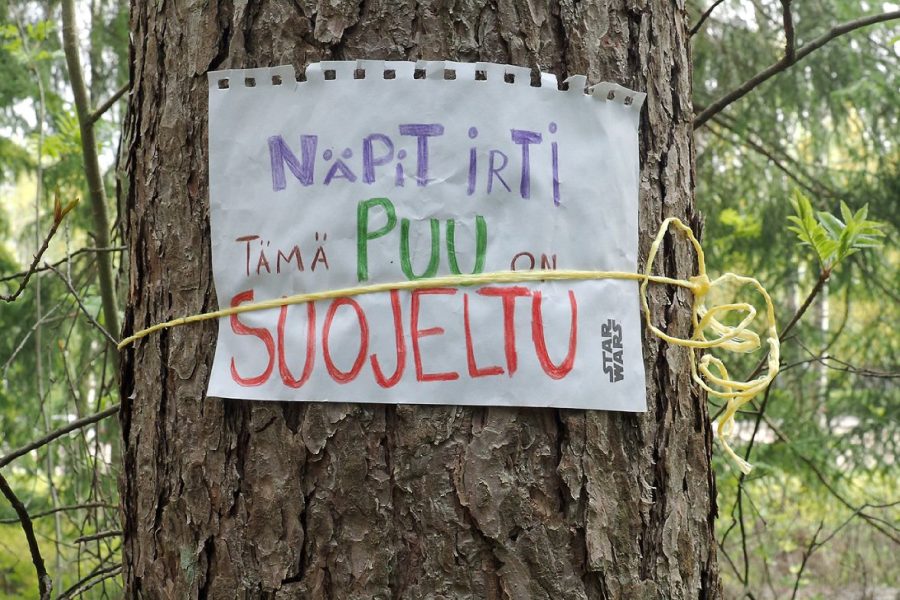 NÄPiT iRTi
TÄMÄ PUU ON
SUOJELTU
STAR
WARS